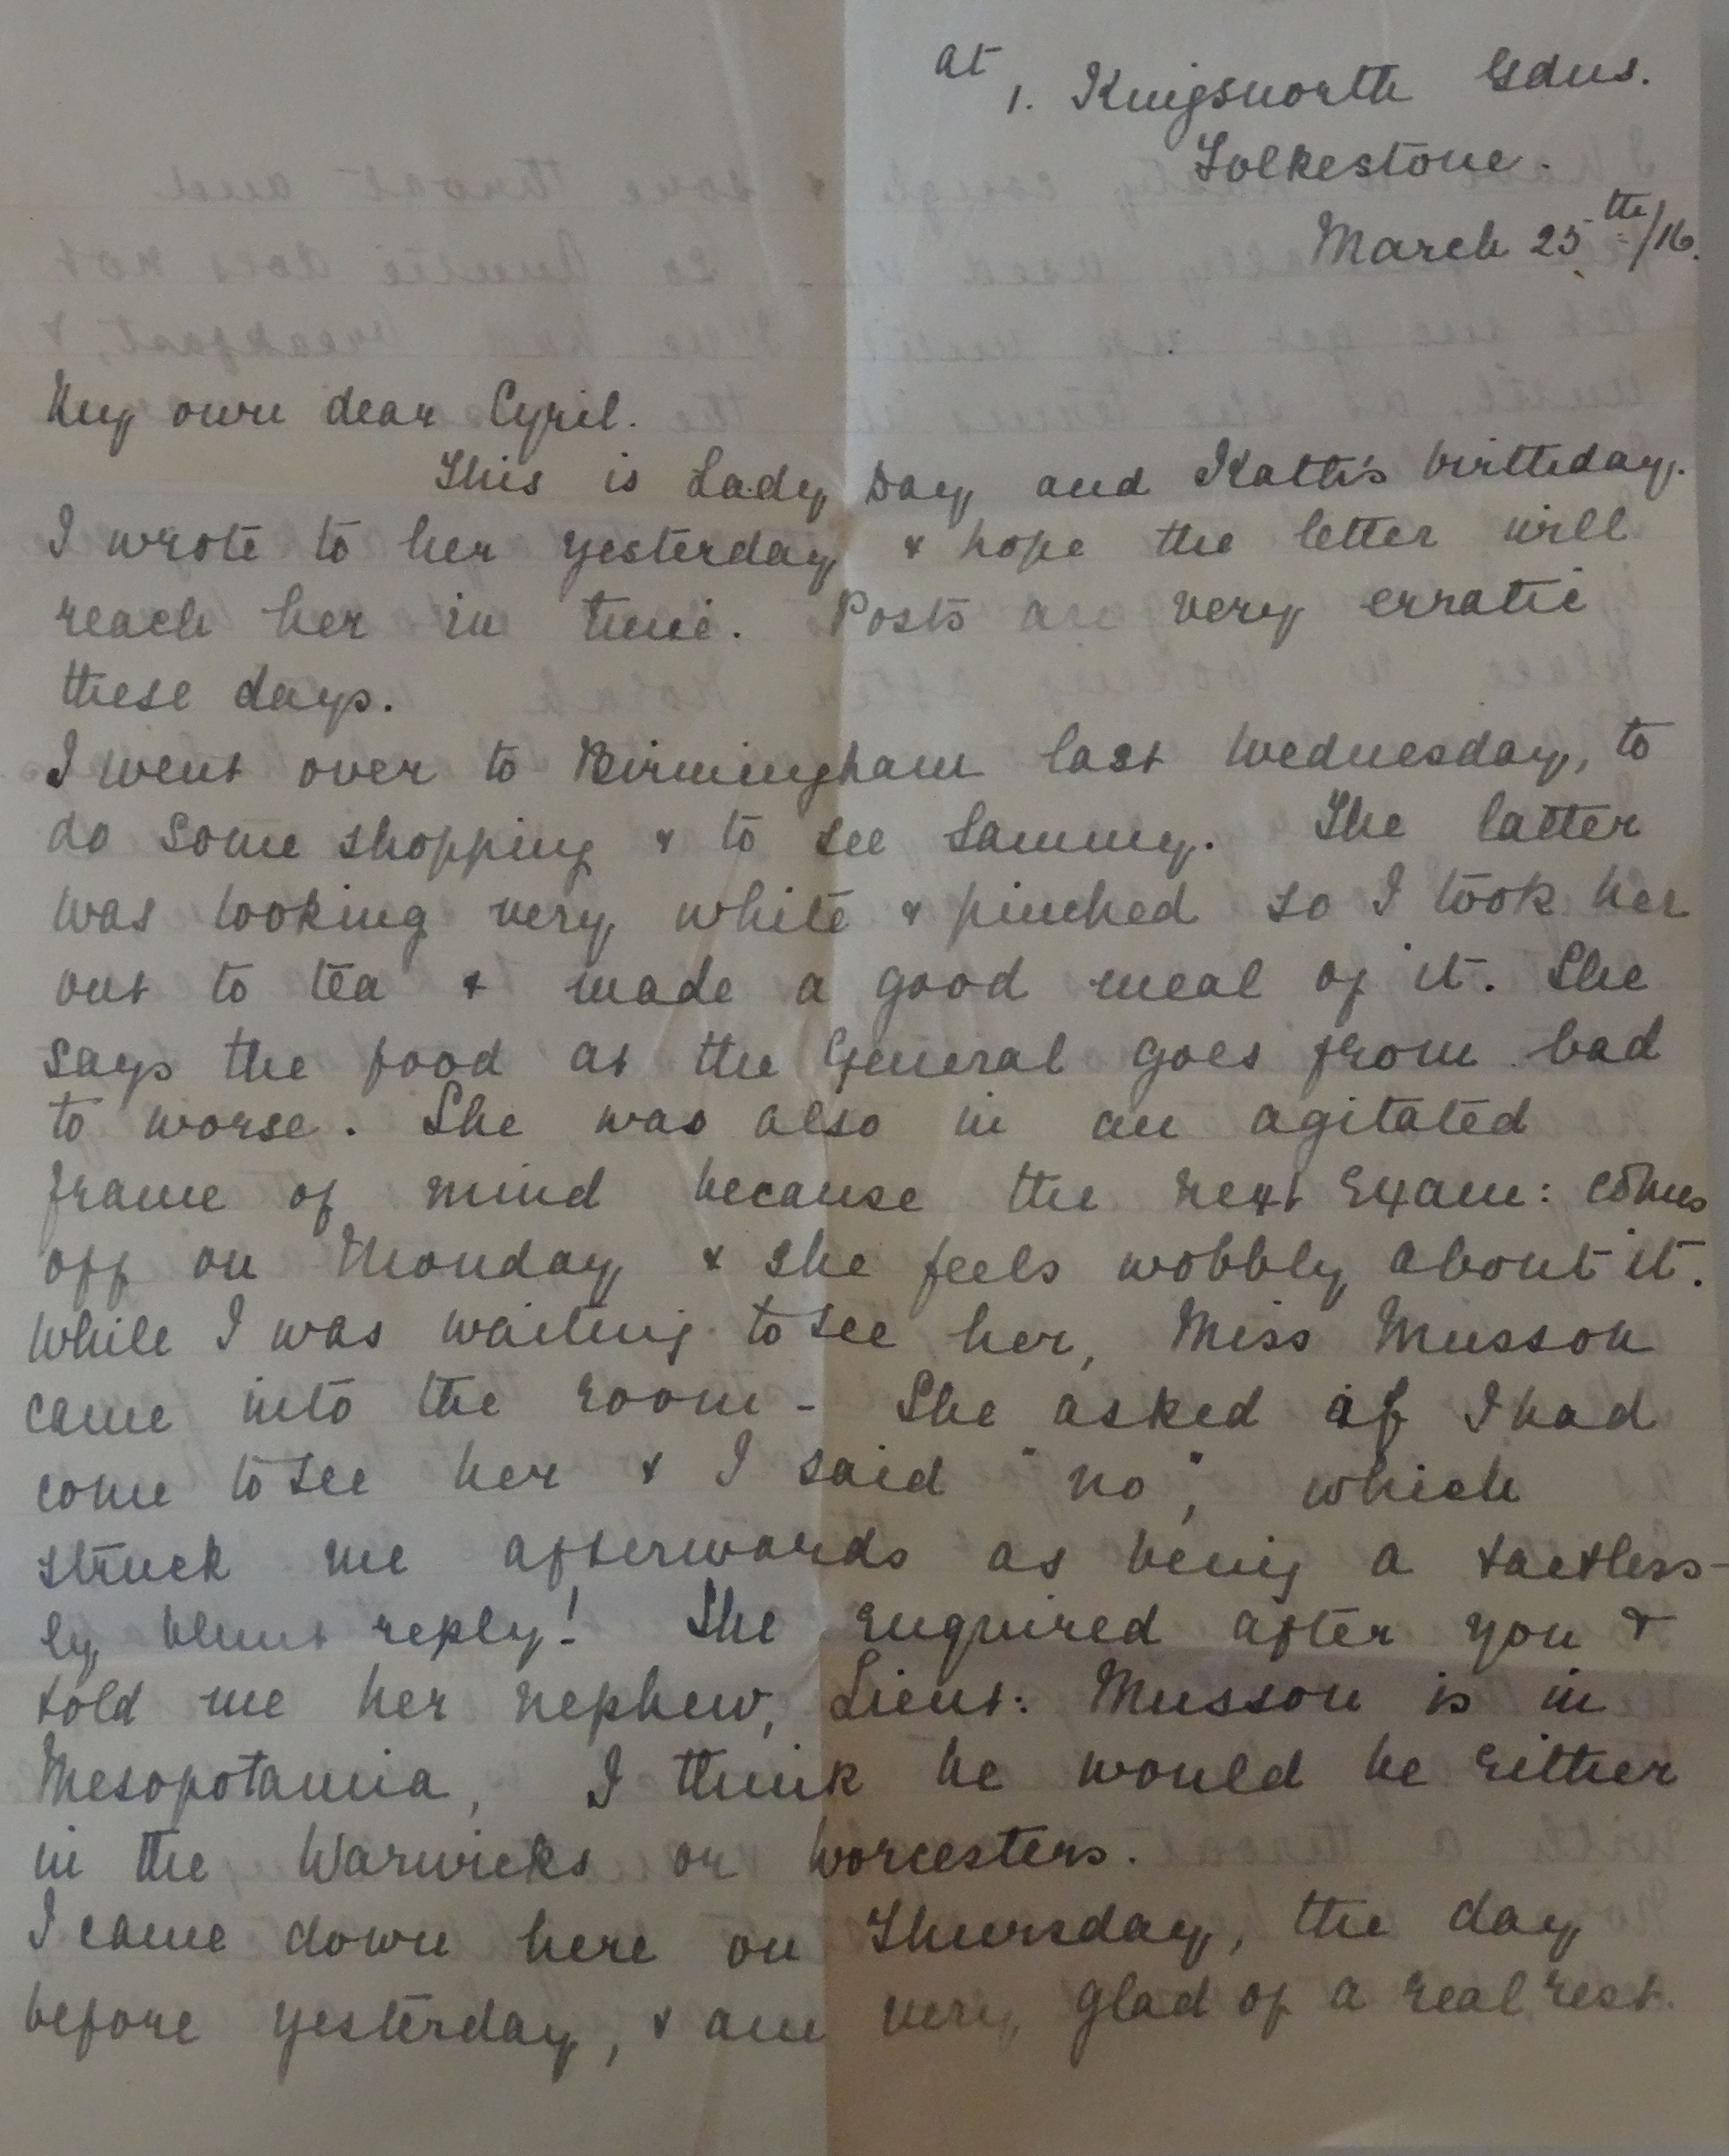 at 1. Kingsnorth Gdns.
Folkestone.
March 25th/16.
My own dear Cyril.
This is Lady Day and Kath's birthday.
I wrote to her yesterday & hope the letter will
reach her in time. Posts are very erratic
these days.
I went over to Birmingham last Wednesday, to
do some shopping & to see Sammy. The latter
was looking very white & pinched so I took her
out to tea & made a good meal of it. She
says the food at the General goes from bad
to worse. She was also in an agitated
frame of mind because the next Exam: comes
off on Monday & she feels wobbly about it.
While I was waiting to see her, Miss Musson
came into the room - She asked if I had
come to see her & I said "no", which
struck me afterwards as being a tactless-
ly blunt reply! She enquired after you &
told me her nephew, Lieut: Musson is in
Mesopotamia, I think he would be either
in the Warwicks or Worcesters.
I came down here on Thursday, the day
before yesterday, & am very glad of a real rest.